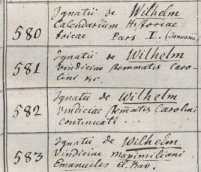 Ignatii de Wilhelm
580 Calendarium Historiae
Pars I.
581 Ignatii de Wilhelm
Vindiciae Stemmatis Caro
lini &c.
582 Ignatii de Wilhelm
Vindiciae Stematis Carolini
Continuati . . .
583 Ignatii de Wilhelm
Vindiciae Maximiliani
Emanuelis El. Bav.